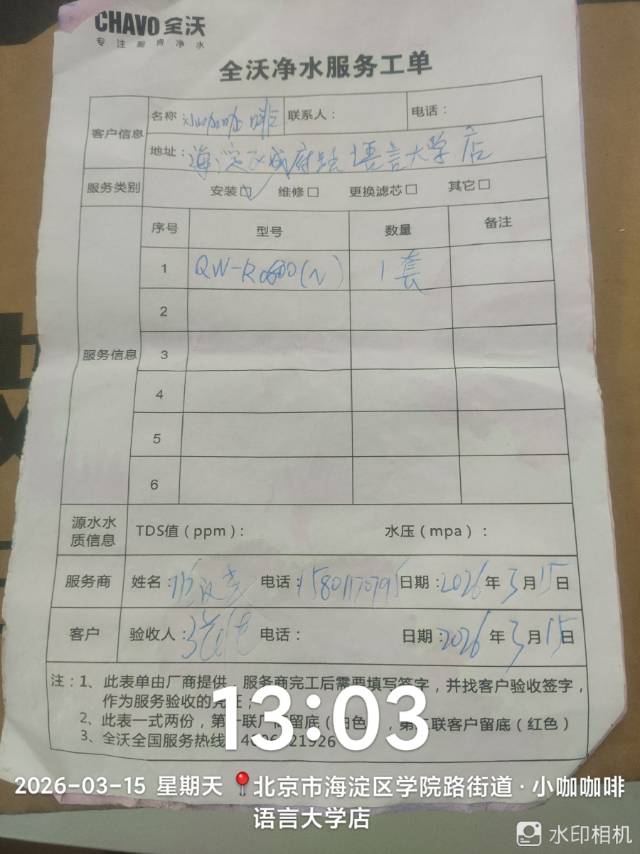 CHAVO 全沃
专注厨房净水
全沃净水服务工单
客户信息
名称 小咖咖啡 联系人： 电话：
地址： 海淀区成府路语言大学店
服务类别 安装☑ 维修□ 更换滤芯□ 其它□
服务信息
序号 型号 数量 备注
1 QW-R 1套
2
3
4
5
6
源水水质信息 TDS值（ppm）： 水压（mpa）：
服务商 姓名： 电话： 日期：2026年3月15日
客户 验收人： 电话： 日期：2026年3月15日
注：1、此表单由厂商提供，服务商完工后需要填写签字，并找客户验收签字，
作为服务验收的凭证；
2、此表一式两份，第一联厂商留底（白色），第二联客户留底（红色）
3、全沃全国服务热线
13:03
2026-03-15 星期天 北京市海淀区学院路街道·小咖咖啡
语言大学店
水印相机